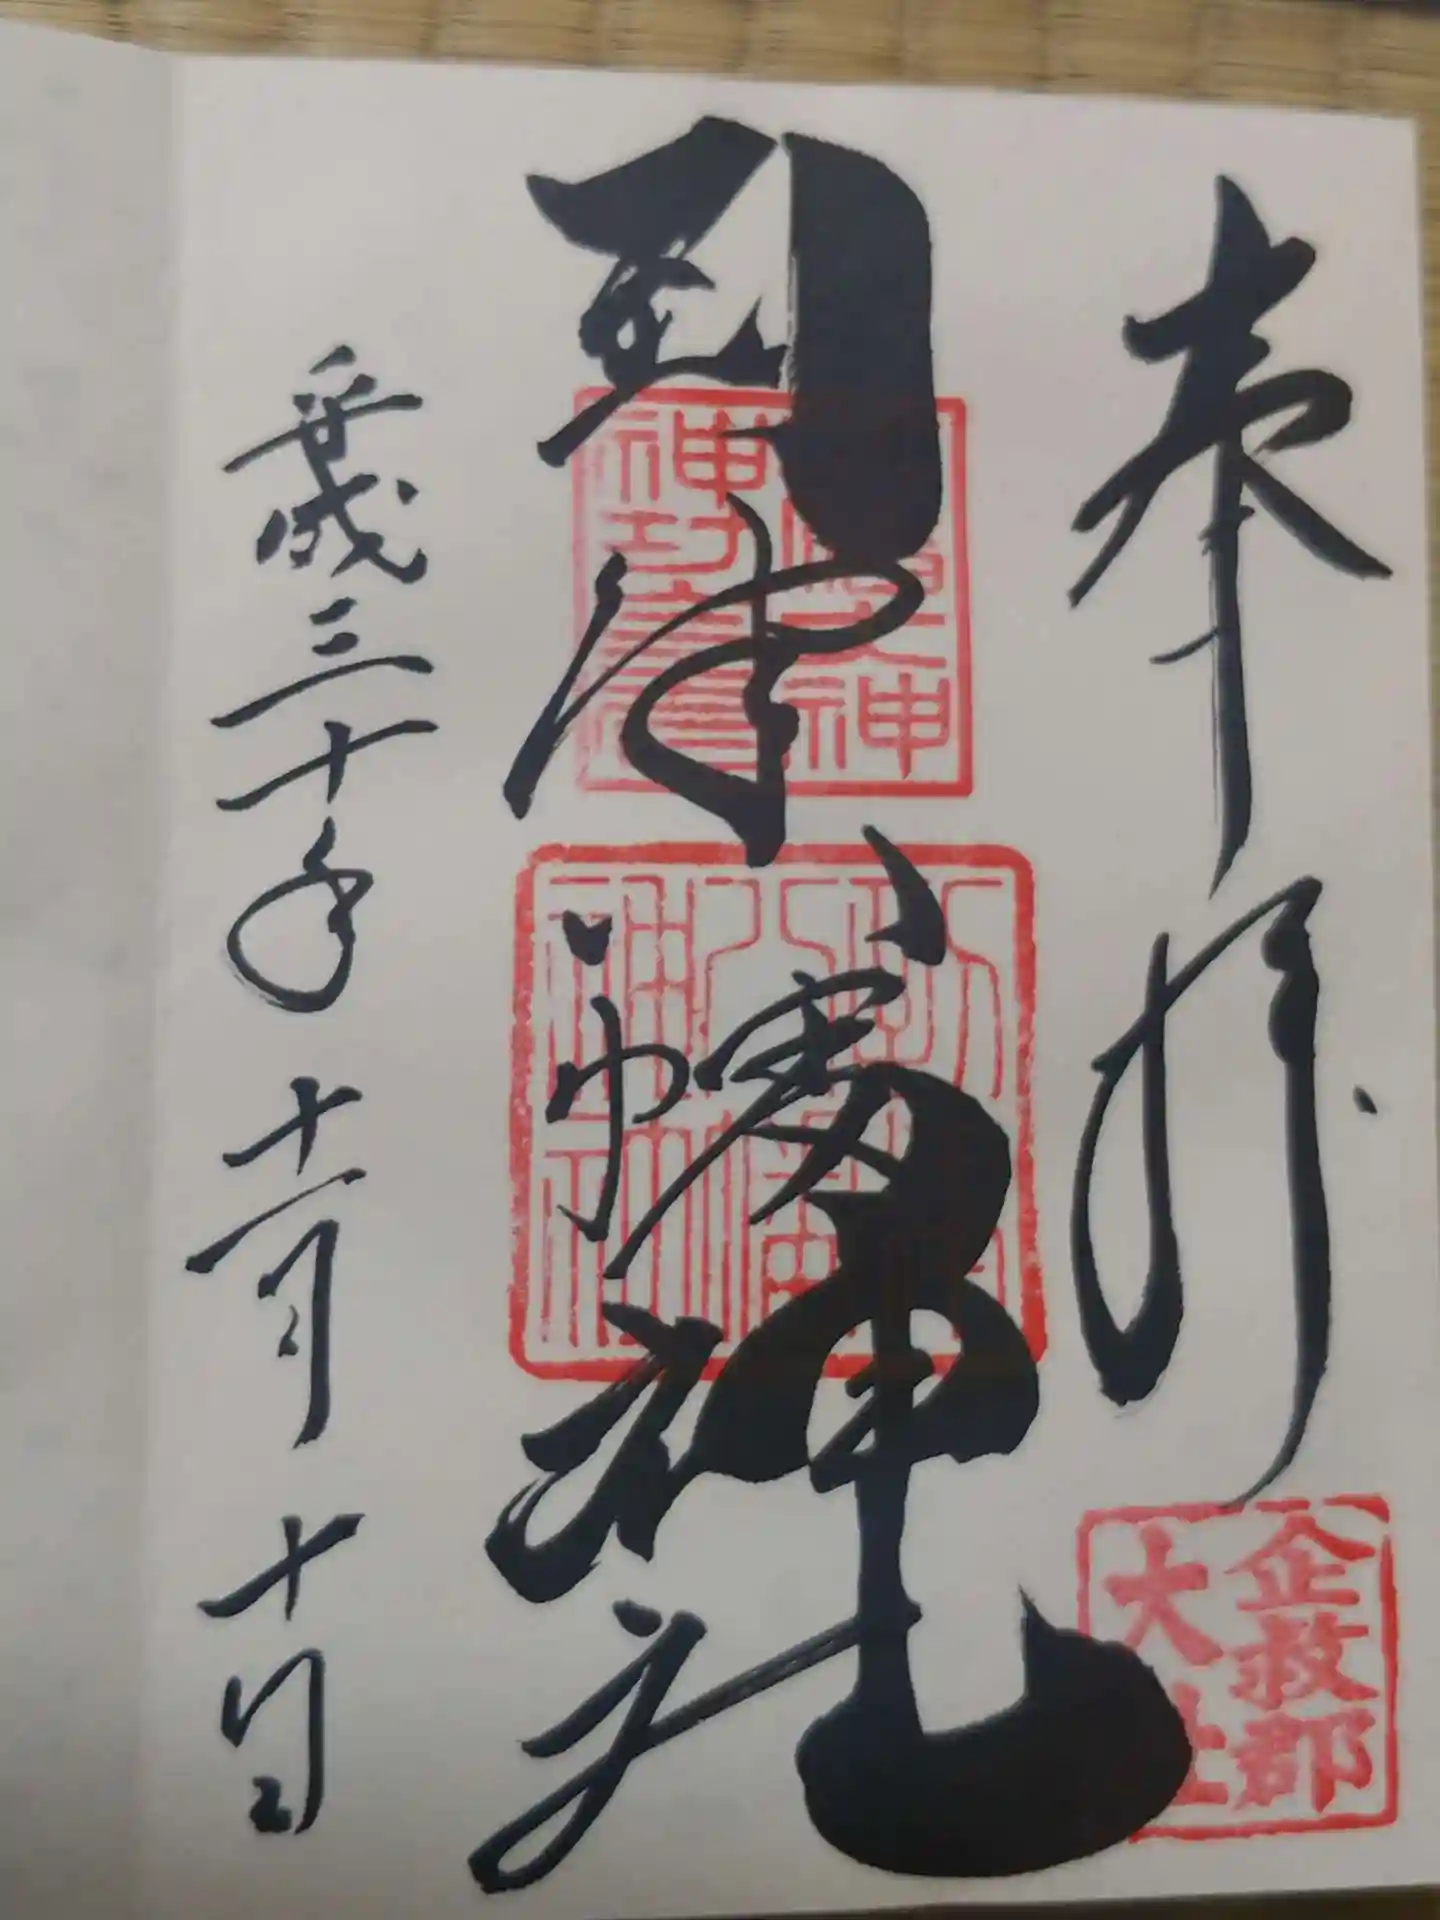 奉拝
企救郡
大社
到津八幡神社
神功皇后
八幡
神社
平成三十年 十一月 十日